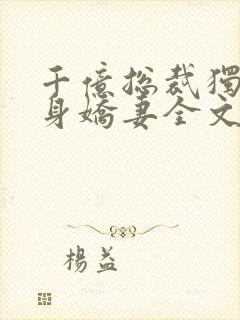 千億总裁獨
身嬌妻全文
楊益